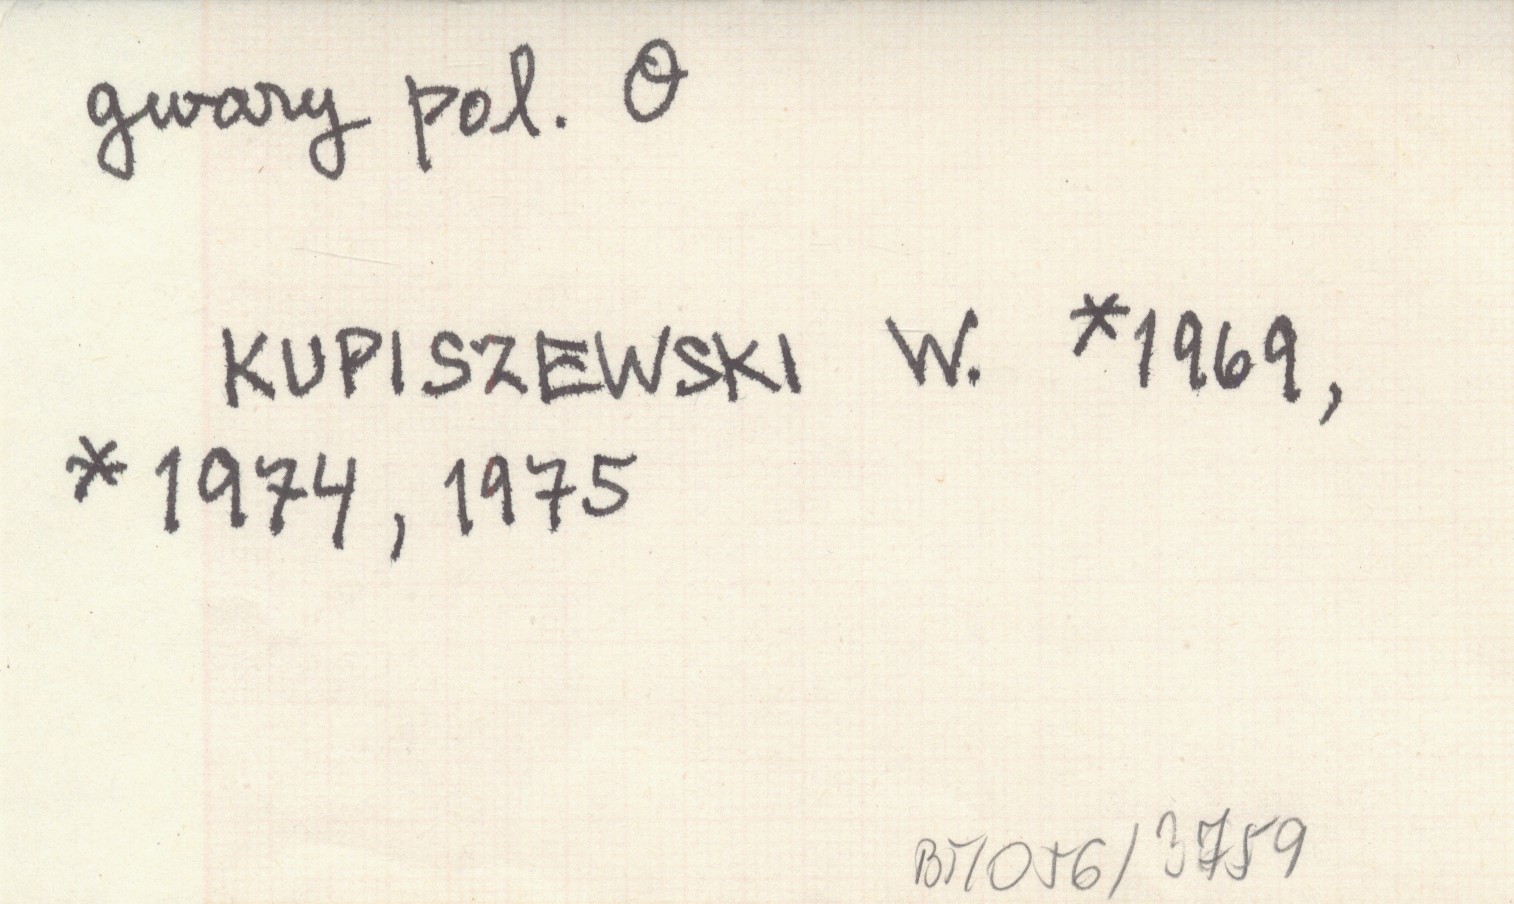 gwary pol. O
KUPISZEWSKI W. *1969,
*1974, 1975
BM056/3759